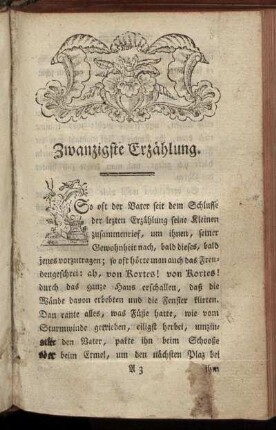 Zwanzigste Erzählung.
So oft der Vater seit dem Schlusse
der lezten Erzählung seine Kleinen
zusammenrief, um ihnen, seiner
Gewohnheit nach, bald dieses, bald
jenes vorzutragen; so oft hörte man auch das Freu-
dengeschrei: ah, von Kortes! von Kortes!
durch das ganze Haus erschallen, daß die
Wände davon erbebten und die Fenster klirten.
Dan rante alles, was Füße hatte, wie vom
Sturmwinde getrieben, eiligst herbei, umzin-
gelte den Vater, pakte ihn beim Schooße
oder beim Ermel, um den nächsten Plaz bei
A 3 ihm